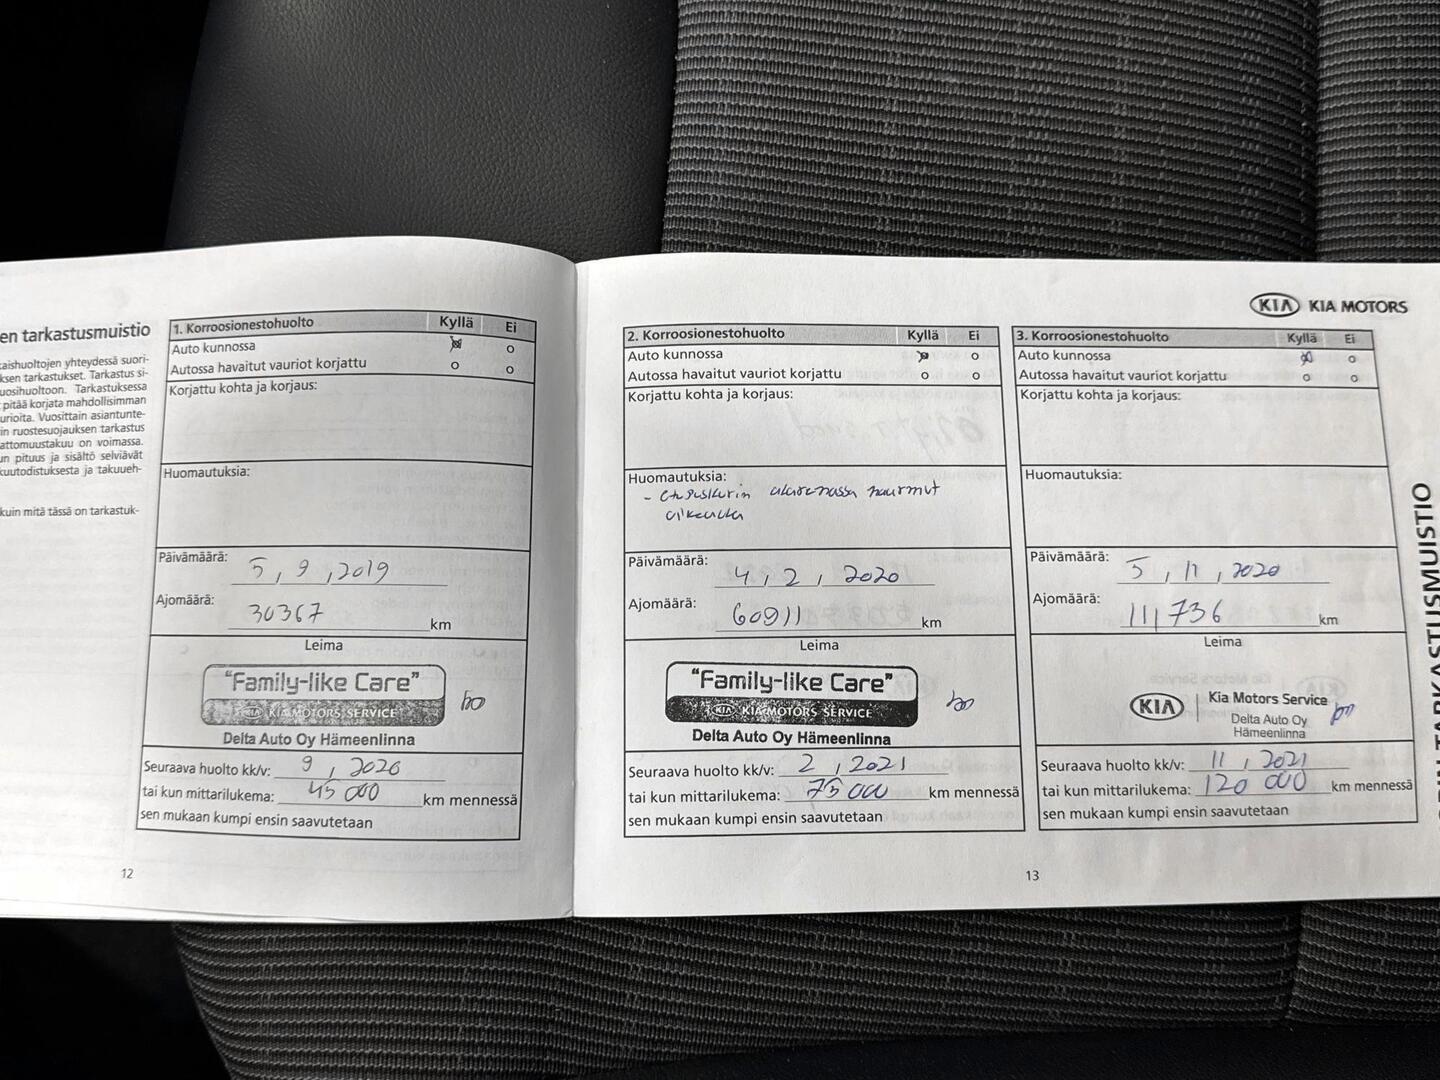 en tarkastusmuistio
aishuoltojen yhteydessä suori-
ksen tarkastukset. Tarkastus si-
uosihuoltoon. Tarkastuksessa
pitää korjata mahdollisimman
urioita. Vuosittain asiantunte-
in ruostesuojauksen tarkastus
attomuustakuu on voimassa.
un pituus ja sisältö selviävät
kuutodistuksesta ja takuueh-
kuin mitä tässä on tarkastuk-
1. Korroosionestohuolto Kyllä Ei
Auto kunnossa o
Autossa havaitut vauriot korjattu o o
Korjattu kohta ja korjaus:
Huomautuksia:
Päivämäärä: 5, 9, 2019
Ajomäärä: 30367 km
Leima
"Family-like Care"
KIA KIA MOTORS SERVICE
Delta Auto Oy Hämeenlinna
Seuraava huolto kk/v: 9, 2020
tai kun mittarilukema: 45 000 km mennessä
sen mukaan kumpi ensin saavutetaan
12
KIA KIA MOTORS
2. Korroosionestohuolto Kyllä Ei
Auto kunnossa o
Autossa havaitut vauriot korjattu o o
Korjattu kohta ja korjaus:
Huomautuksia:
- etupuskurin alareunassa naarmut
oikealla
Päivämäärä: 4, 2, 2020
Ajomäärä: 60911 km
Leima
"Family-like Care"
KIA KIA MOTORS SERVICE
Delta Auto Oy Hämeenlinna
Seuraava huolto kk/v: 2, 2021
tai kun mittarilukema: 75 000 km mennessä
sen mukaan kumpi ensin saavutetaan
3. Korroosionestohuolto Kyllä Ei
Auto kunnossa o
Autossa havaitut vauriot korjattu o o
Korjattu kohta ja korjaus:
Huomautuksia:
Päivämäärä: 5, 11, 2020
Ajomäärä: 111,736 km
Leima
KIA Kia Motors Service
Delta Auto Oy
Hämeenlinna
Seuraava huolto kk/v: 11, 2021
tai kun mittarilukema: 120 000 km mennessä
sen mukaan kumpi ensin saavutetaan
13
TARKASTUSMUISTIO